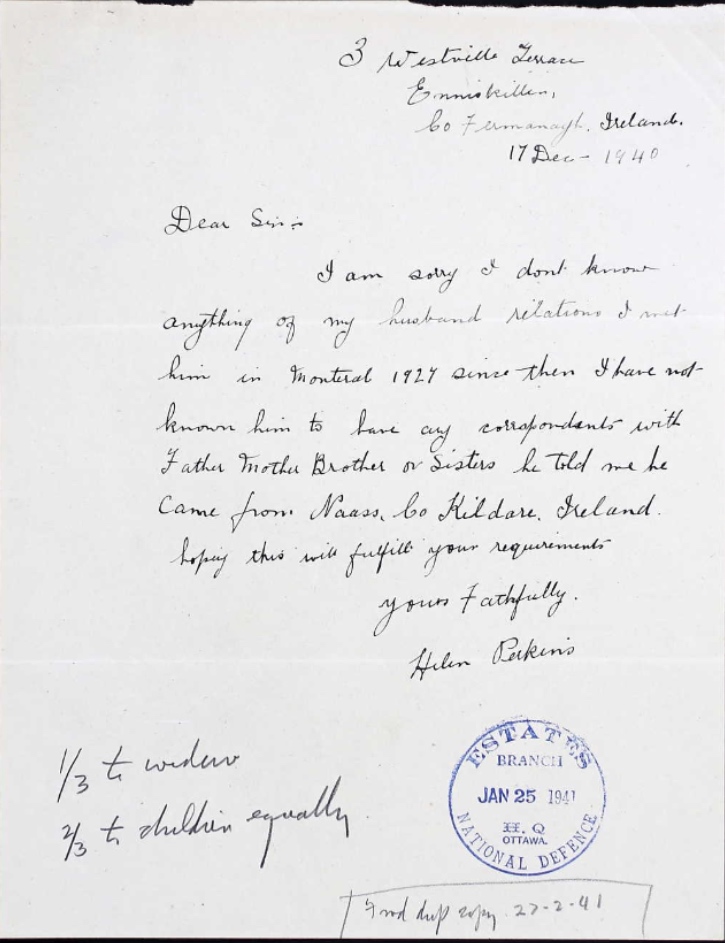 3 Westville Terrace
Enniskillen,
Co Fermanagh. Ireland.
17 Dec - 1940
Dear Sir:-
I am sorry I dont know
anything of my husband relations I met
him in Monteral 1927 since then I have not
known him to have any correspondents with
Father Mother Brother or Sisters he told me he
Came from Naass, Co Kildare, Ireland.
hoping this will fulfill your requirements
yours Fathfully.
Helen Perkins
1/3 to widow
2/3 to children equally
ESTATES
BRANCH
JAN 25 1941
H.Q
OTTAWA.
NATIONAL DEFENCE
dup copy 27-2-41